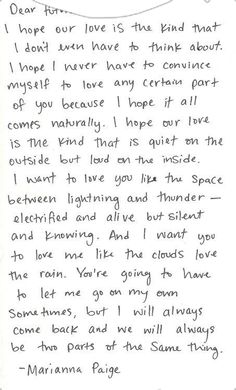 Dear
I hope our love is the kind that
I don't even have to think about.
I hope I never have to convince
myself to love any certain part
of you because I hope it all
comes naturally. I hope our love
is the kind that is quiet on the
outside but loud on the inside.
I want to love you like the space
between lightning and thunder —
electrified and alive but silent
and knowing. And I want you
to love me like the clouds love
the rain. You're going to have
to let me go on my own
sometimes, but I will always
come back and we will always
be two parts of the same thing.
-Marianna Paige